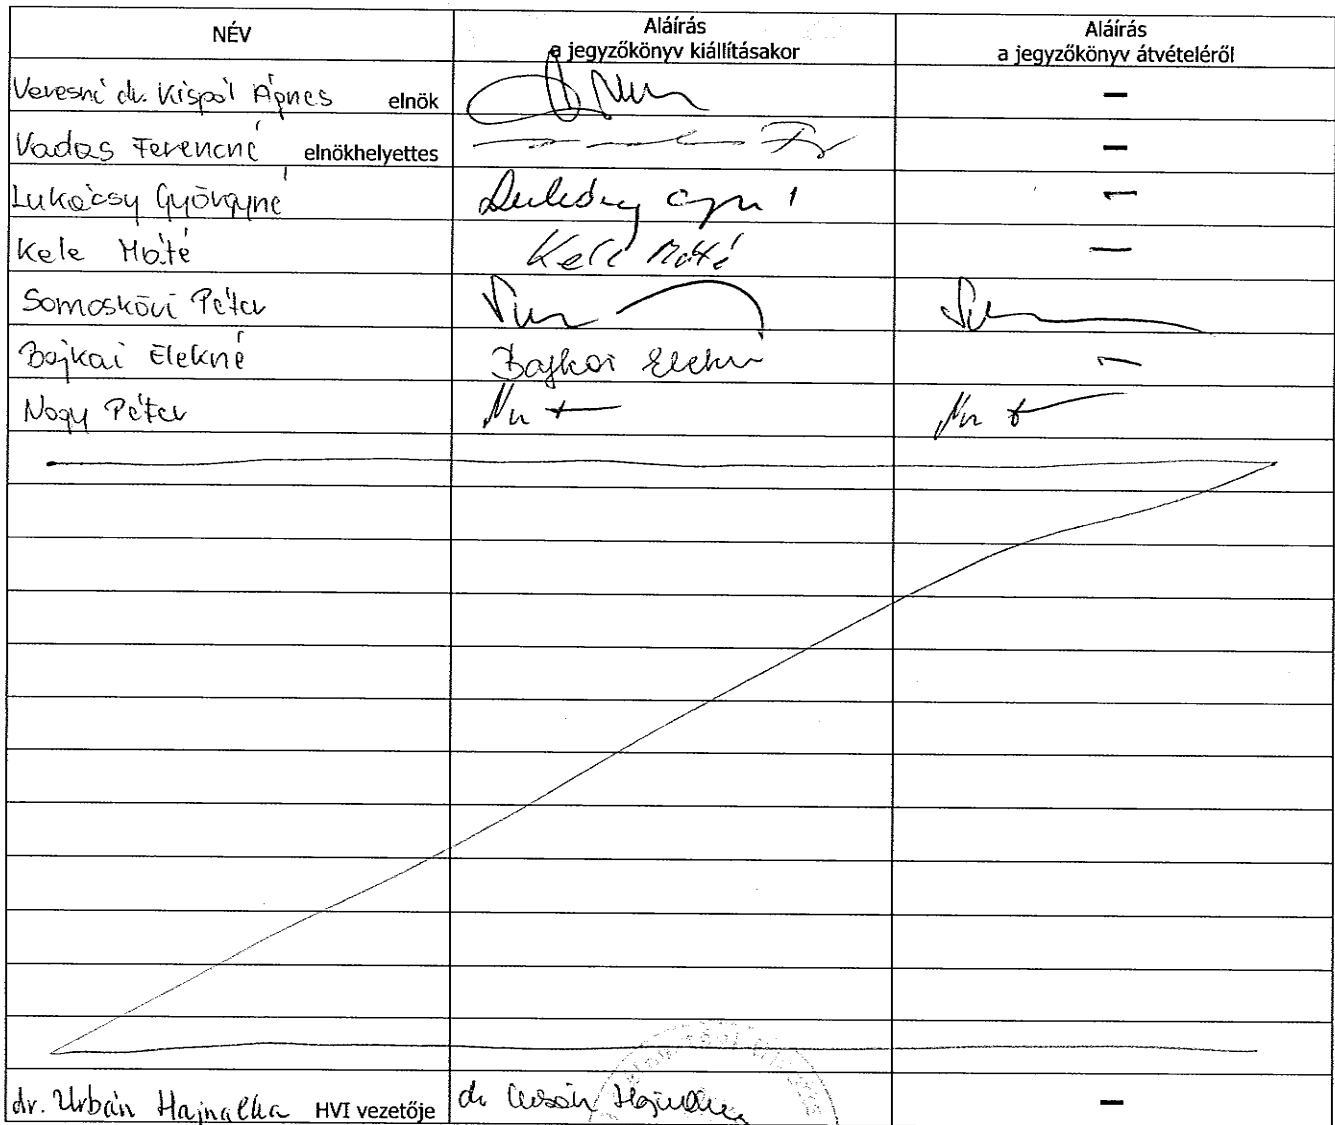 NÉV
Aláírás
a jegyzőkönyv kiállításakor
Aláírás
a jegyzőkönyv átvételéről
Veresné dr. Kispál Ágnes elnök
—
Vadas Ferencné elnökhelyettes
—
Lukácsy Györgyné
—
Kele Máté Kele Máté —
Somoskövi Péter
Bajkai Elekné Bajkai Elekné —
Nagy Péter
dr. Urbán Hajnalka HVI vezetője dr Urbán Hajnalka —